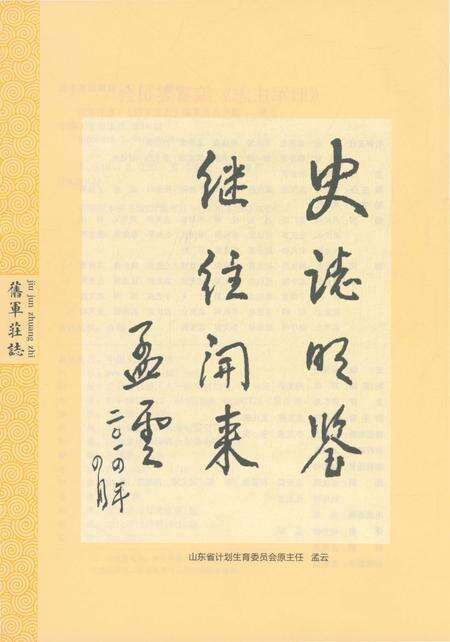 史誌明鉴
继往开来
孟雲
二〇一四年
四月
jiu jun zhuang zhi
舊軍莊誌
山东省计划生育委员会原主任 孟云